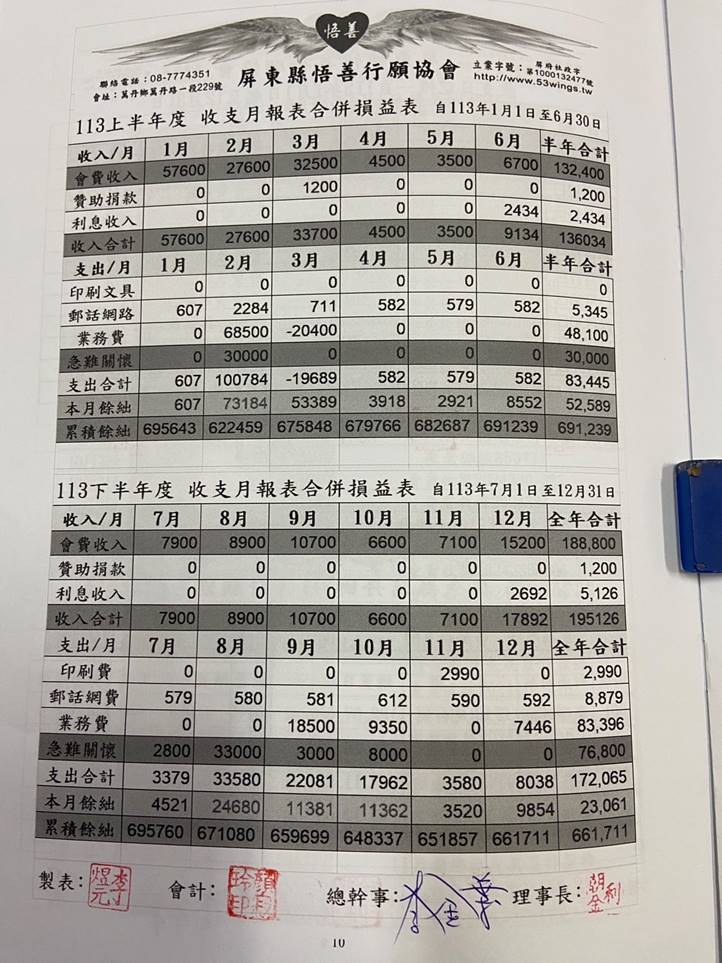 悟善
聯絡電話：08-7774351
會址：萬丹鄉萬丹路一段229號
屏東縣悟善行願協會
立業字號：屏府社政字第1000132477號
http://www.53wings.tw
113上半年度 收支月報表合併損益表 自113年1月1日至6月30日
收入/月 1月 2月 3月 4月 5月 6月 半年合計
會費收入 57600 27600 32500 4500 3500 6700 132,400
贊助捐款 0 0 1200 0 0 0 1,200
利息收入 0 0 0 0 0 2434 2,434
收入合計 57600 27600 33700 4500 3500 9134 136034
支出/月 1月 2月 3月 4月 5月 6月 半年合計
印刷文具 0 0 0 0 0 0 0
郵話網路 607 2284 711 582 579 582 5,345
業務費 0 68500 -20400 0 0 0 48,100
急難關懷 0 30000 0 0 0 0 30,000
支出合計 607 100784 -19689 582 579 582 83,445
本月餘絀 607 73184 53389 3918 2921 8552 52,589
累積餘絀 695643 622459 675848 679766 682687 691239 691,239
113下半年度 收支月報表合併損益表 自113年7月1日至12月31日
收入/月 7月 8月 9月 10月 11月 12月 全年合計
會費收入 7900 8900 10700 6600 7100 15200 188,800
贊助捐款 0 0 0 0 0 0 1,200
利息收入 0 0 0 0 0 2692 5,126
收入合計 7900 8900 10700 6600 7100 17892 195126
支出/月 7月 8月 9月 10月 11月 12月 全年合計
印刷費 0 0 0 0 2990 0 2,990
郵話網費 579 580 581 612 590 592 8,879
業務費 0 0 18500 9350 0 7446 83,396
急難關懷 2800 33000 3000 8000 0 0 76,800
支出合計 3379 33580 22081 17962 3580 8038 172,065
本月餘絀 4521 24680 11381 11362 3520 9854 23,061
累積餘絀 695760 671080 659699 648337 651857 661711 661,711
製表： 李煜元 會計： 顏玲印 總幹事： 理事長：
10